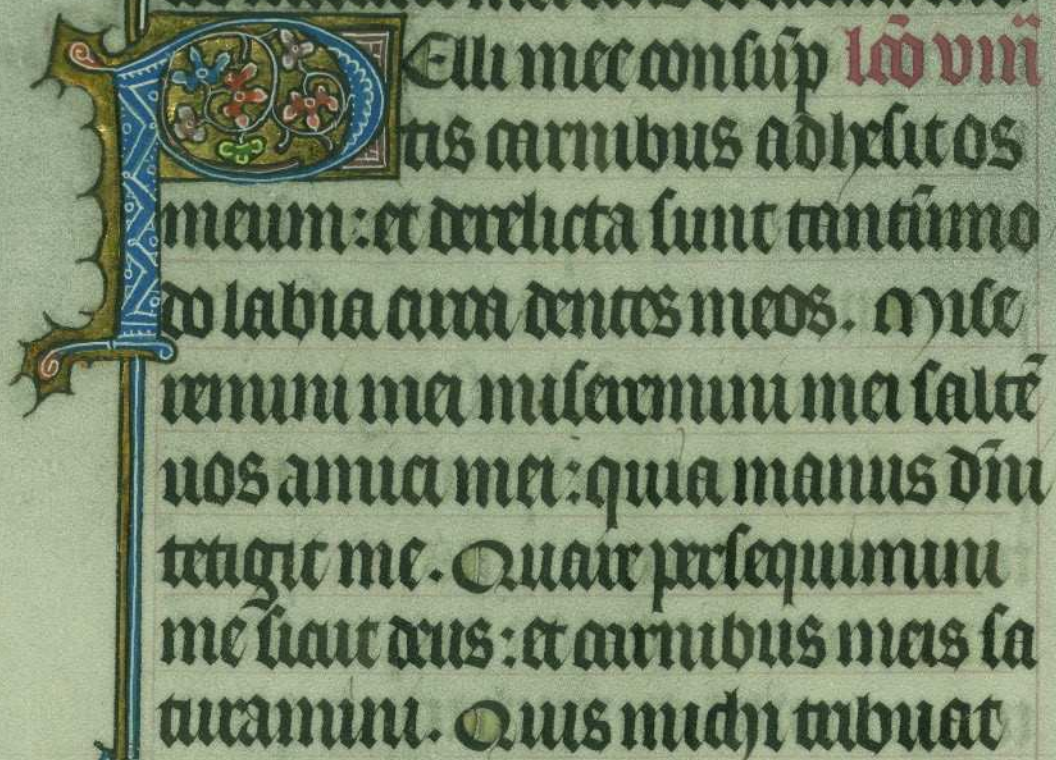 PElli mee consūp lcō viii
tis carnibus adhesit os
meum : et derelicta sunt tantūmo
do labia circa dentes meos. Mise
remini mei miseremini mei saltē
uos amici mei : quia manus dn̄i
tetigit me. Quare persequimini
me sicut deus : et carnibus meis sa
turamini. Quis michi tribuat